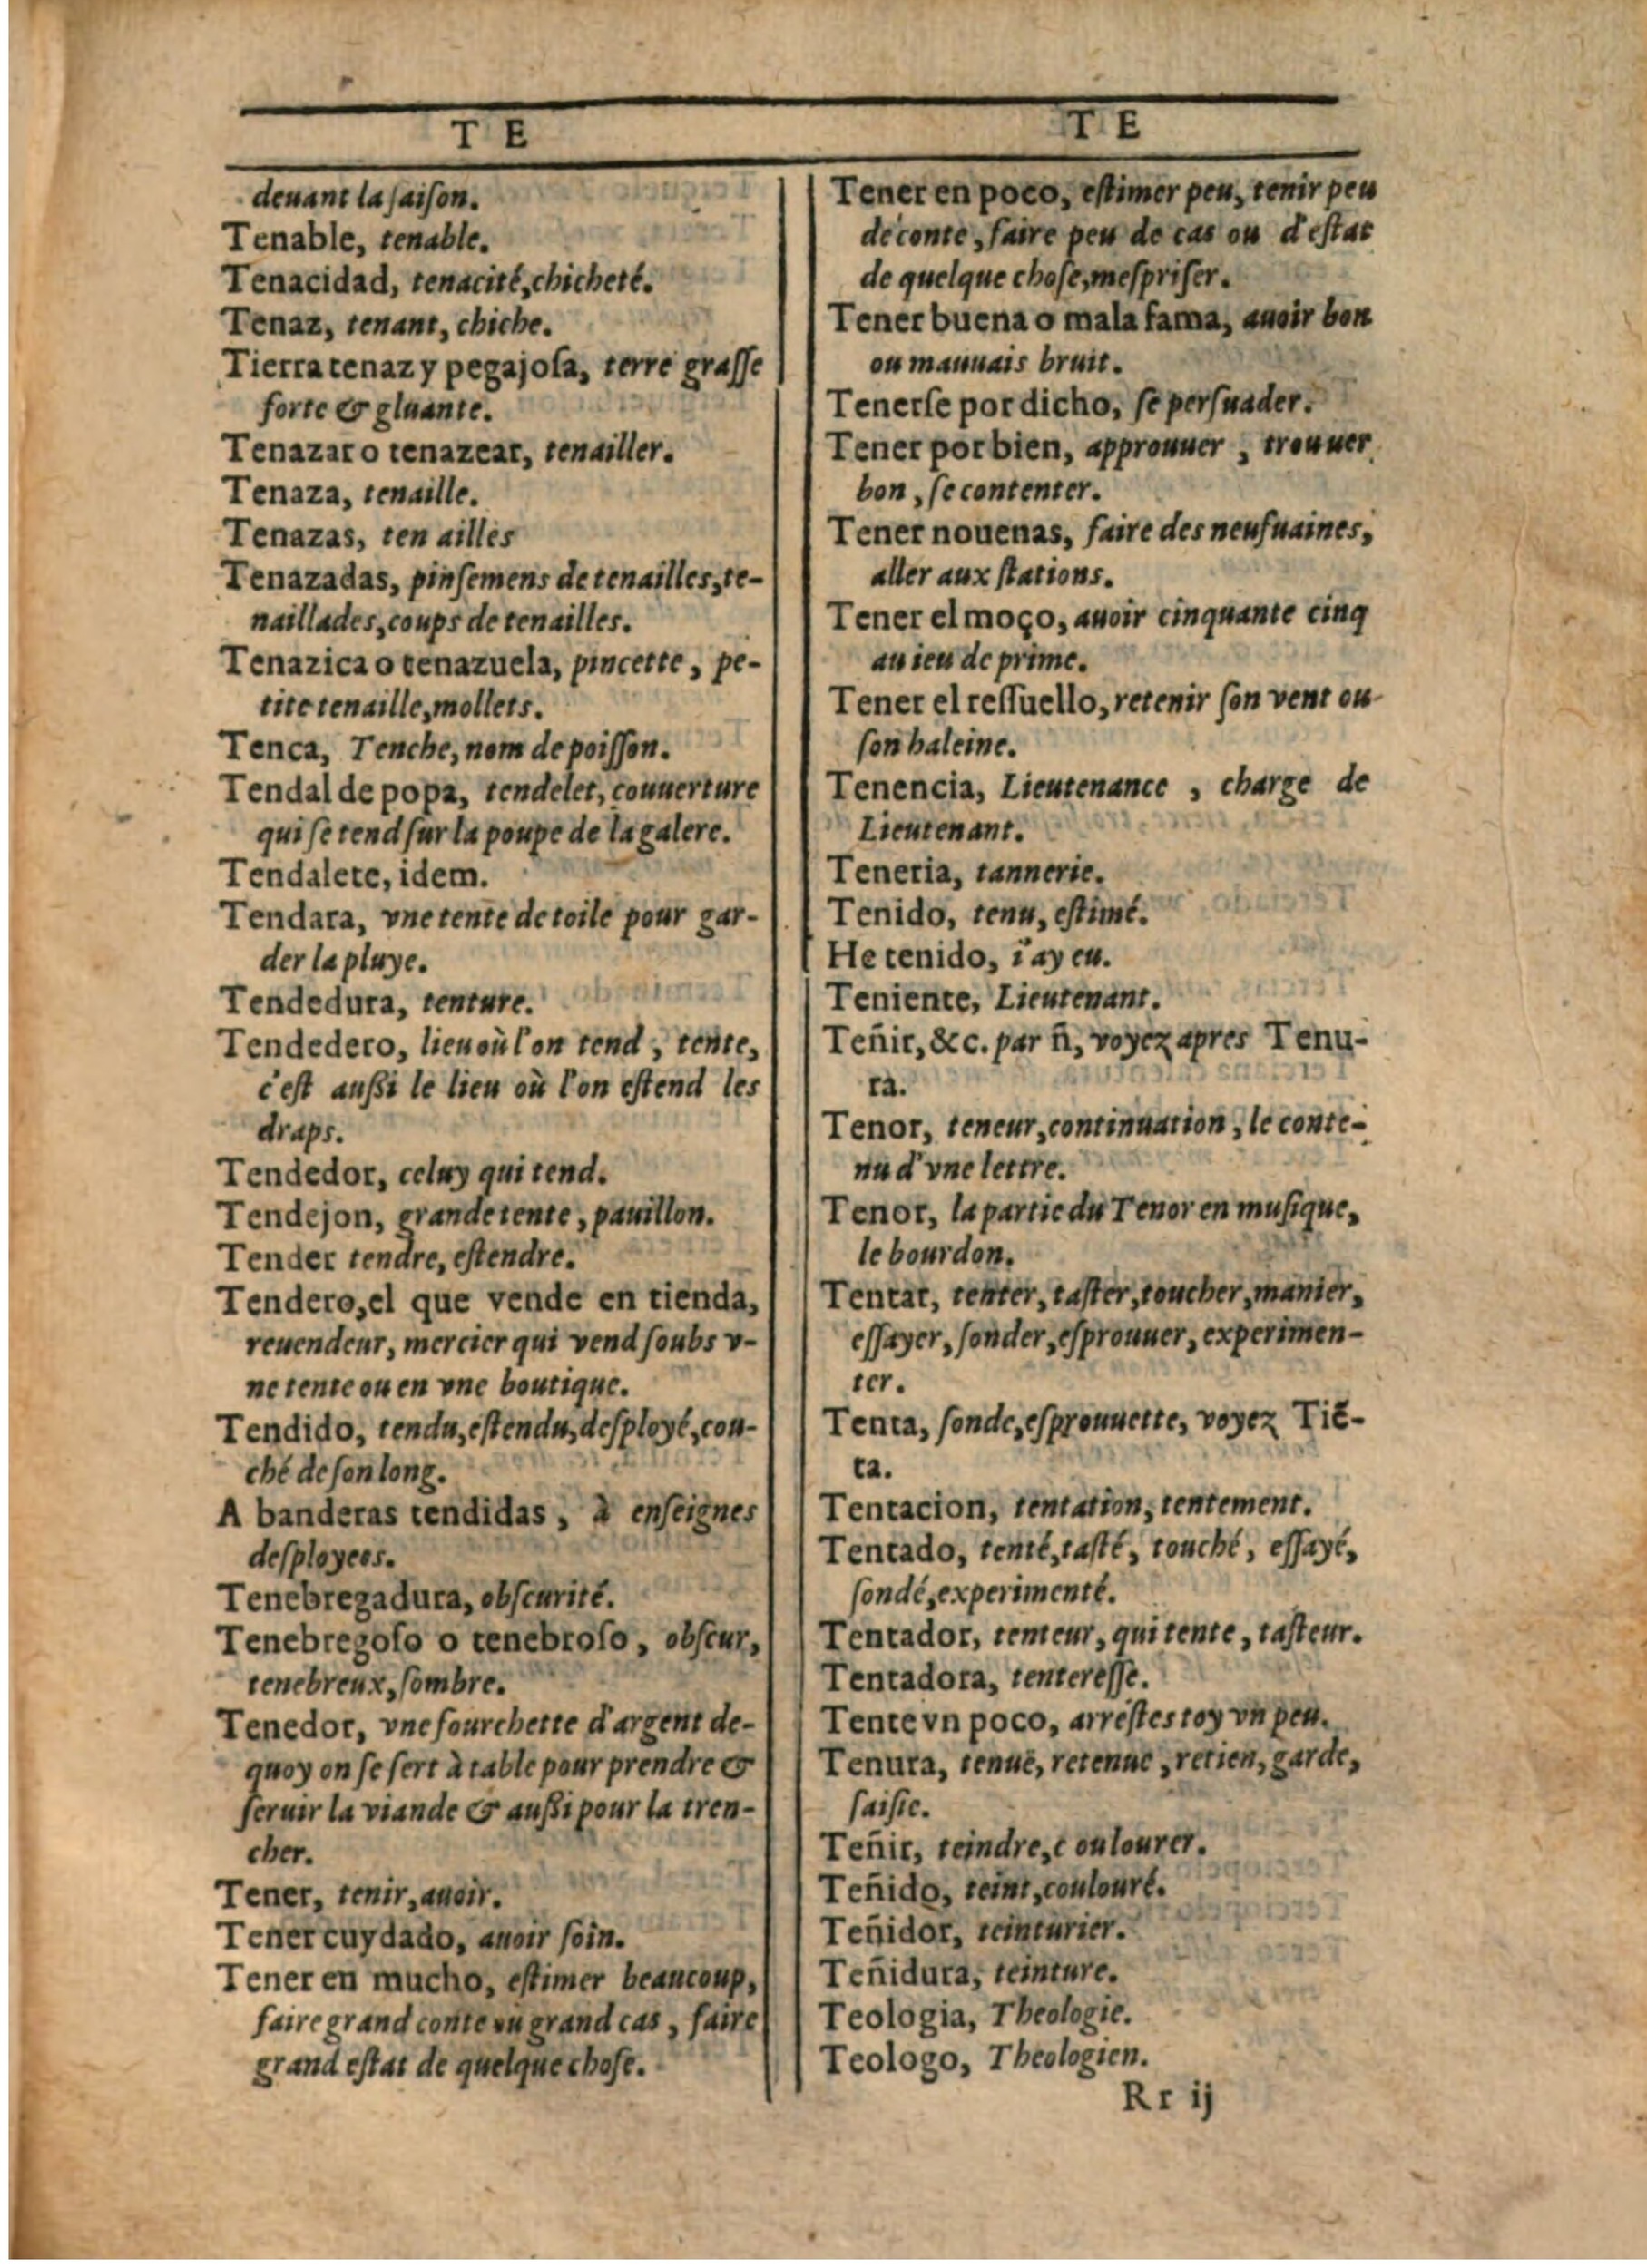 T E
deuant la saiſon.
Tenable, tenable.
Tenacidad, tenacité, chicheté.
Tenaz, tenant, chiche.
Tierra tenaz y pegajoſa, terre graſſe
forte & gluante.
Tenazar o tenazear, tenailler.
Tenaza, tenaille.
Tenazas, ten ailles
Tenazadas, pinſemens de tenailles, te-
naillades, coups de tenailles.
Tenazica o tenazuela, pincette, pe-
tite tenaille, mollets.
Tenca, Tenche, nom de poiſſon.
Tendal de popa, tendelet, couuerture
qui ſe tend ſur la poupe de la galere.
Tendalete, idem.
Tendara, vne tente de toile pour gar-
der la pluye.
Tendedura, tenture.
Tendedero, lieu où l'on tend, tente,
c'eſt auſſi le lieu où l'on eſtend les
draps.
Tendedor, celuy qui tend.
Tendejon, grande tente, pauillon.
Tender tendre, eſtendre.
Tendero, el que vende en tienda,
reuendeur, mercier qui vend ſoubs v-
ne tente ou en vne boutique.
Tendido, tendu, eſtendu, deſployé, cou-
ché de ſon long.
A banderas tendidas, à enſeignes
deſployees.
Tenebregadura, obſcurité.
Tenebregoſo o tenebroſo, obſcur,
tenebreux, ſombre.
Tenedor, vne fourchette d'argent de-
quoy on ſe ſert à table pour prendre &
ſeruir la viande & auſſi pour la tren-
cher.
Tener, tenir, auoir.
Tener cuydado, auoir ſoin.
Tener en mucho, eſtimer beaucoup,
faire grand conte ou grand cas, faire
grand eſtat de quelque choſe.
T E
Tener en poco, eſtimer peu, tenir peu
de conte, faire peu de cas ou d'eſtat
de quelque choſe, meſpriſer.
Tener buena o mala fama, auoir bon
ou mauuais bruit.
Tenerſe por dicho, ſe perſuader.
Tener por bien, approuuer, trouuer
bon, ſe contenter.
Tener nouenas, faire des neufuaines,
aller aux ſtations.
Tener el moço, auoir cinquante cinq
au ieu de prime.
Tener el reſſuello, retenir ſon vent ou
ſon haleine.
Tenencia, Lieutenance, charge de
Lieutenant.
Teneria, tannerie.
Tenido, tenu, eſtimé.
He tenido, i'ay eu.
Teniente, Lieutenant.
Teñir, &c. par ñ, voyez apres Tenu-
ra.
Tenor, teneur, continuation, le conte-
nu d'vne lettre.
Tenor, la partie du Tenor en muſique,
le bourdon.
Tentar, tenter, taſter, toucher, manier,
eſſayer, ſonder, eſprouuer, experimen-
ter.
Tenta, ſonde, eſprouuette, voyez Tiẽ-
ta.
Tentacion, tentation, tentement.
Tentado, tenté, taſté, touché, eſſayé,
ſondé, experimenté.
Tentador, tenteur, qui tente, taſteur.
Tentadora, tentereſſe.
Tente vn poco, arreſtes toy vn peu.
Tenura, tenuë, retenue, retien, garde,
ſaiſie.
Teñir, teindre, c oulourer.
Teñido, teint, coulouré.
Teñidor, teinturier.
Teñidura, teinture.
Teologia, Theologie.
Teologo, Theologien.
Rr ij